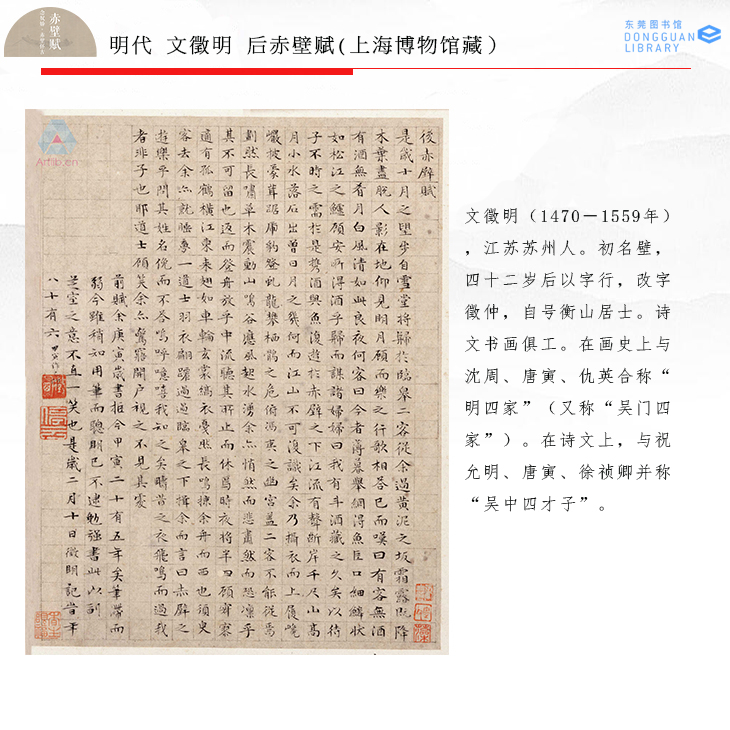 赤壁赋
明代 文徵明 后赤壁赋(上海博物馆藏)
东莞图书馆
DONGGUAN
LIBRARY
Artlib.cn
後赤壁賦
是歲十月之望步自雪堂將歸於臨皋二客從余過黃泥之坂霜露既降
木葉盡脫人影在地仰見明月顧而樂之行歌相答已而嘆曰有客無酒
有酒無肴月白風清如此良夜何客曰今者薄暮舉網得魚巨口細鱗狀
如松江之鱸顧安所得酒乎歸而謀諸婦婦曰我有斗酒藏之久矣以待
子不時之需於是攜酒與魚復遊於赤壁之下江流有聲斷岸千尺山高
月小水落石出曾日月之幾何而江山不可復識矣余乃攝衣而上履巉
巖披蒙茸踞虎豹登虬龍攀栖鶻之危俯馮夷之幽宮蓋二客不能從焉
劃然長嘯草木震動山鳴谷應風起水湧余亦悄然而悲肅然而恐凜乎
其不可留也返而登舟放乎中流聽其所止而休焉時夜將半四顧寂寥
適有孤鶴橫江東來翅如車輪玄裳縞衣戛然長鳴掠余舟而西也須臾
客去余亦就睡夢一道士羽衣翩躚過臨皋之下揖余而言曰赤壁之
遊樂乎問其姓名俛而不答嗚呼噫嘻我知之矣疇昔之夜飛鳴而過我
者非子也耶道士顧笑余亦驚寤開户視之不見其處
前賦余庚寅歲書拒今甲寅二十有五年矣筆滯而
弱今雖稍知用筆而聰明已不逮勉強書此以副
芝室之意不直一笑也是歲二月十日徵明記時年
八十有六
文徵明（1470－1559年）
，江苏苏州人。初名壁，
四十二岁后以字行，改字
徵仲，自号衡山居士。诗
文书画俱工。在画史上与
沈周、唐寅、仇英合称“
明四家”（又称“吴门四
家”）。在诗文上，与祝
允明、唐寅、徐祯卿并称
“吴中四才子”。